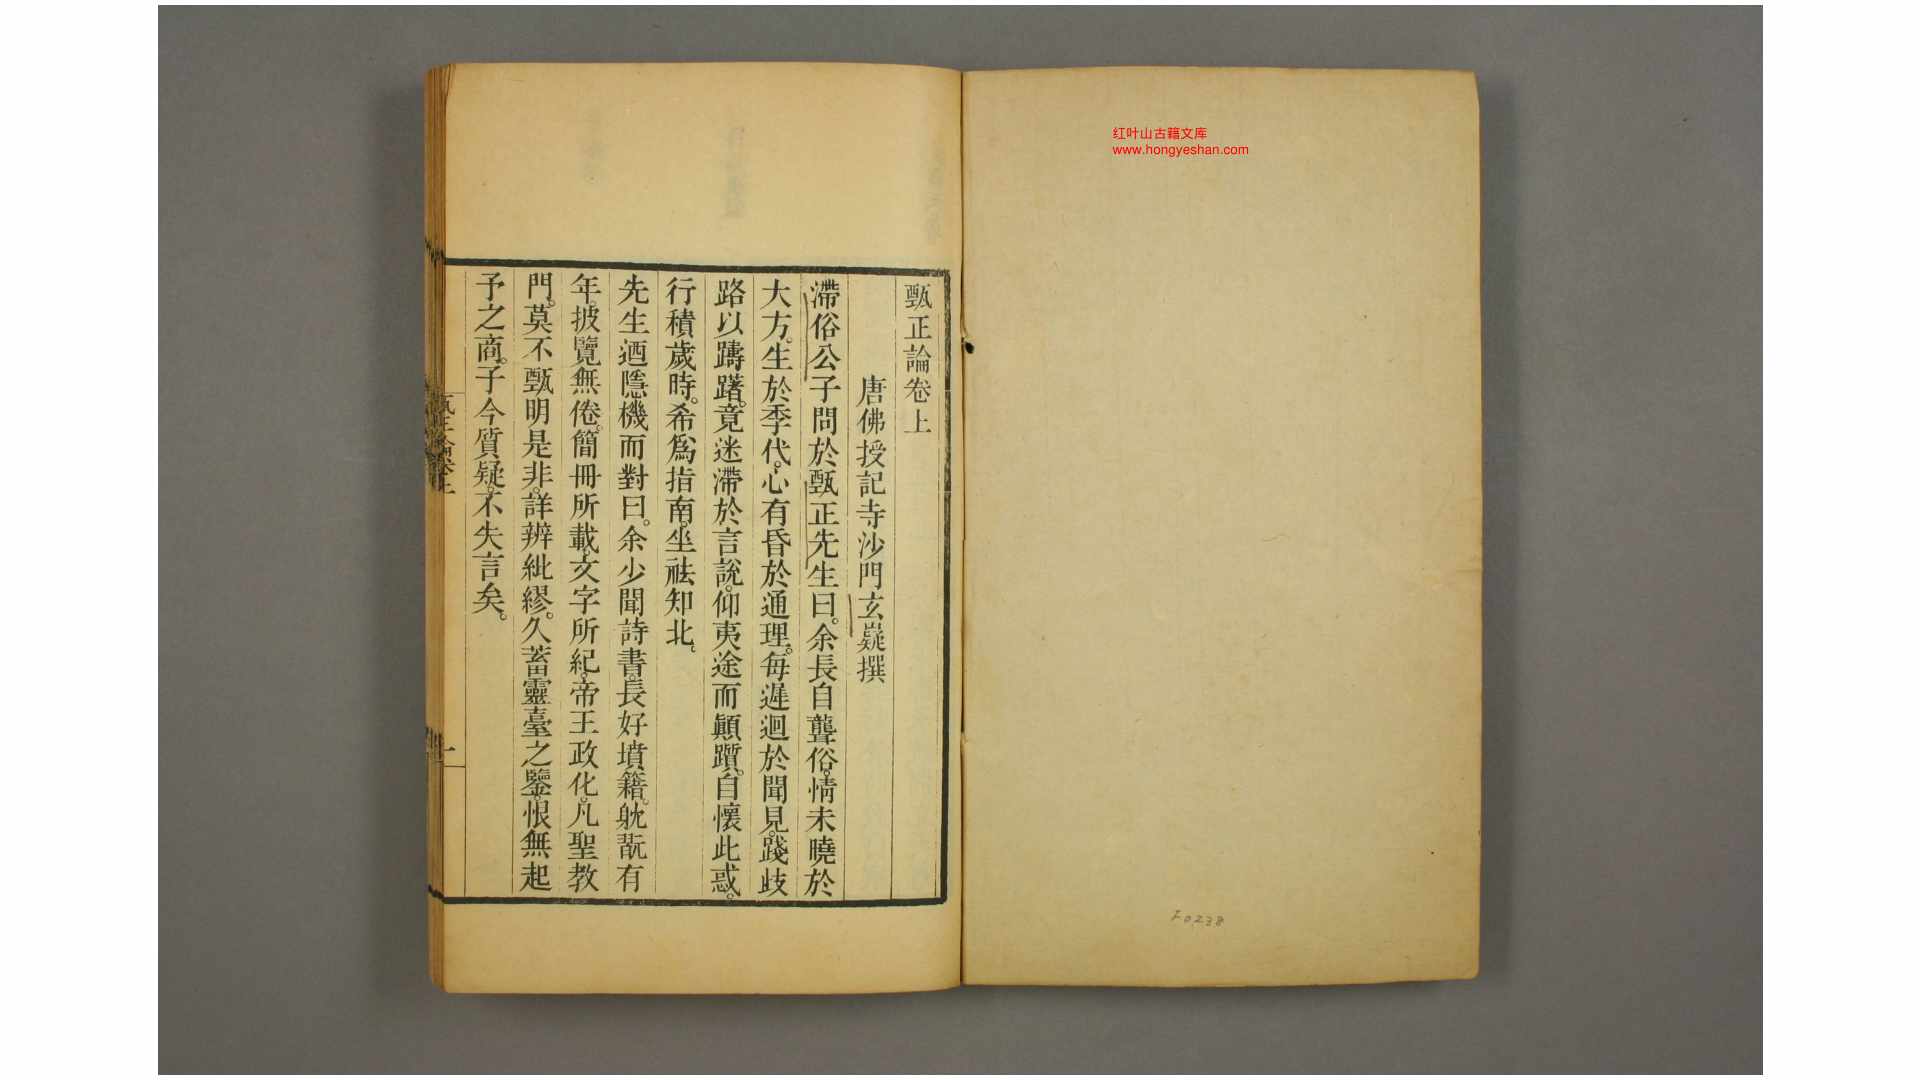 甄正論卷上
唐佛授記寺沙門玄嶷撰
滯俗公子問於甄正先生曰。余長自聾俗。情未曉於
大方。生於季代。心有昏於通理。每遲迴於聞見。踐歧
路以躊躇。竟迷滯於言說。仰夷途而顚躓。自懷此惑。
行積歲時。希爲指南。坐祛知北。
先生迺隱機而對曰。余少聞詩書。長好墳籍。躭翫有
年。披覽無倦。簡冊所載。文字所紀。帝王政化。凡聖教
門。莫不甄明是非。詳辨紕繆。久蓄靈臺之鑒。恨無起
予之商。子今質疑。不失言矣。
甄正論卷上
一
红叶山古籍文库
www.hongyeshan.com